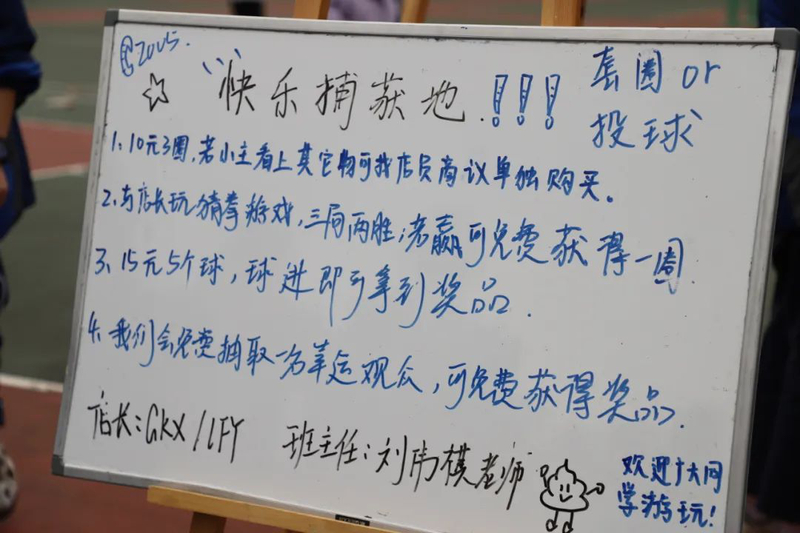 @2005.
☆ “快乐捕获地.!!!
套圈 or
投球
1、10元3圈,若小主看上其它物可找店员商议单独购买。
2、与店长玩猜拳游戏,三局两胜;若赢可免费获得一圈
3、15元5个球,球进即可拿到奖品.
4、我们会免费抽取一名幸运观众,可免费获得奖品.
店长:GKX/LFY 班主任:刘伟棋老师
欢迎广大同
学游玩!